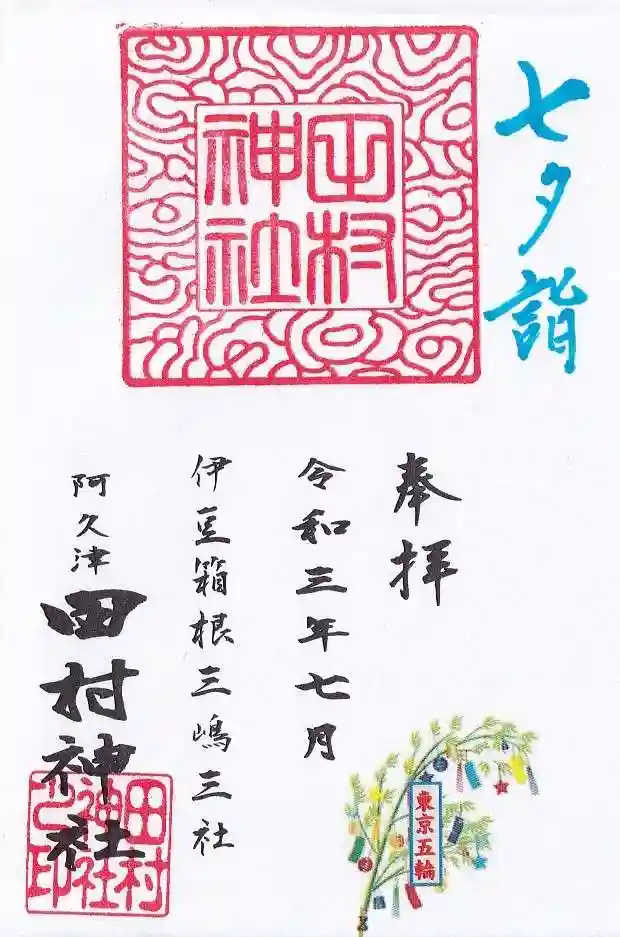 七夕詣
田村
神社
奉拝
令和三年七月
伊豆箱根三嶋三社
阿久津田村神社
田村
神社
之印
東京五輪